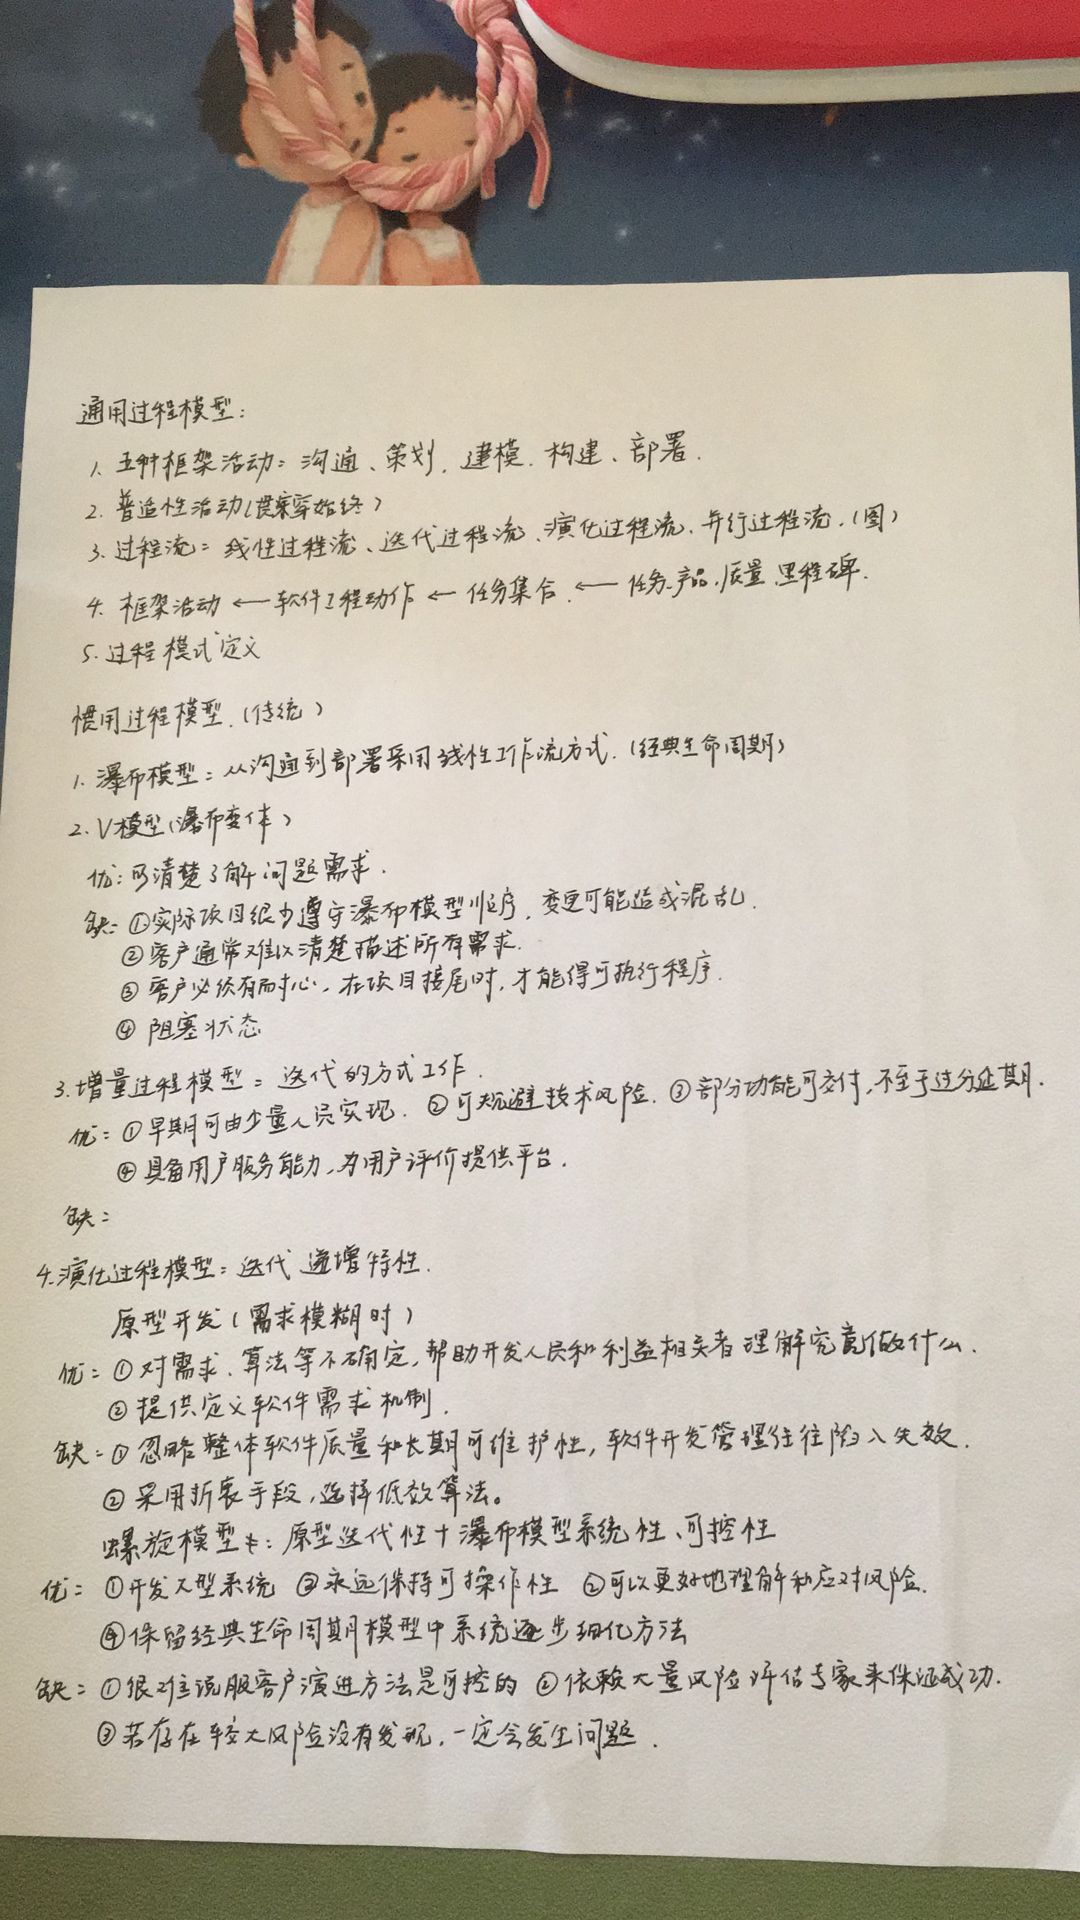 通用过程模型:
1. 五种框架活动: 沟通、策划、建模、构建、部署.
2. 普适性活动(贯穿始终)
3. 过程流: 线性过程流、迭代过程流、演化过程流、并行过程流.(图)
4. 框架活动 ← 软件工程动作 ← 任务集合. ← 任务.产品.质量.里程碑.
5. 过程模式定义
惯用过程模型.(传统)
1. 瀑布模型: 从沟通到部署采用线性工作流方式.(经典生命周期)
2. V模型(瀑布变体)
优: 可清楚了解问题需求.
缺: ①实际项目很少遵守瀑布模型顺序, 变更可能造成混乱.
②客户通常难以清楚描述所有需求.
③客户必须有耐心, 在项目接尾时, 才能得可执行程序.
④阻塞状态
3. 增量过程模型: 迭代的方式工作.
优: ①早期可由少量人员实现. ②可规避技术风险. ③部分功能可交付, 不至于过分延期.
④具备用户服务能力, 为用户评价提供平台.
缺:
4. 演化过程模型: 迭代 递增特性.
原型开发(需求模糊时)
优: ①对需求、算法等不确定, 帮助开发人员和利益相关者理解究竟做什么.
②提供定义软件需求机制.
缺: ①忽略整体软件质量和长期可维护性, 软件开发管理往往陷入失效.
②采用折衷手段, 选择低效算法。
螺旋模型: 原型迭代性+瀑布模型系统性、可控性
优: ①开发大型系统 ③永远保持可操作性 ②可以更好地理解和应对风险.
④保留经典生命周期模型中系统逐步细化方法
缺: ①很难说服客户演进方法是可控的 ②依赖大量风险评估专家来保证成功.
③若存在较大风险没有发现, 一定会发生问题.